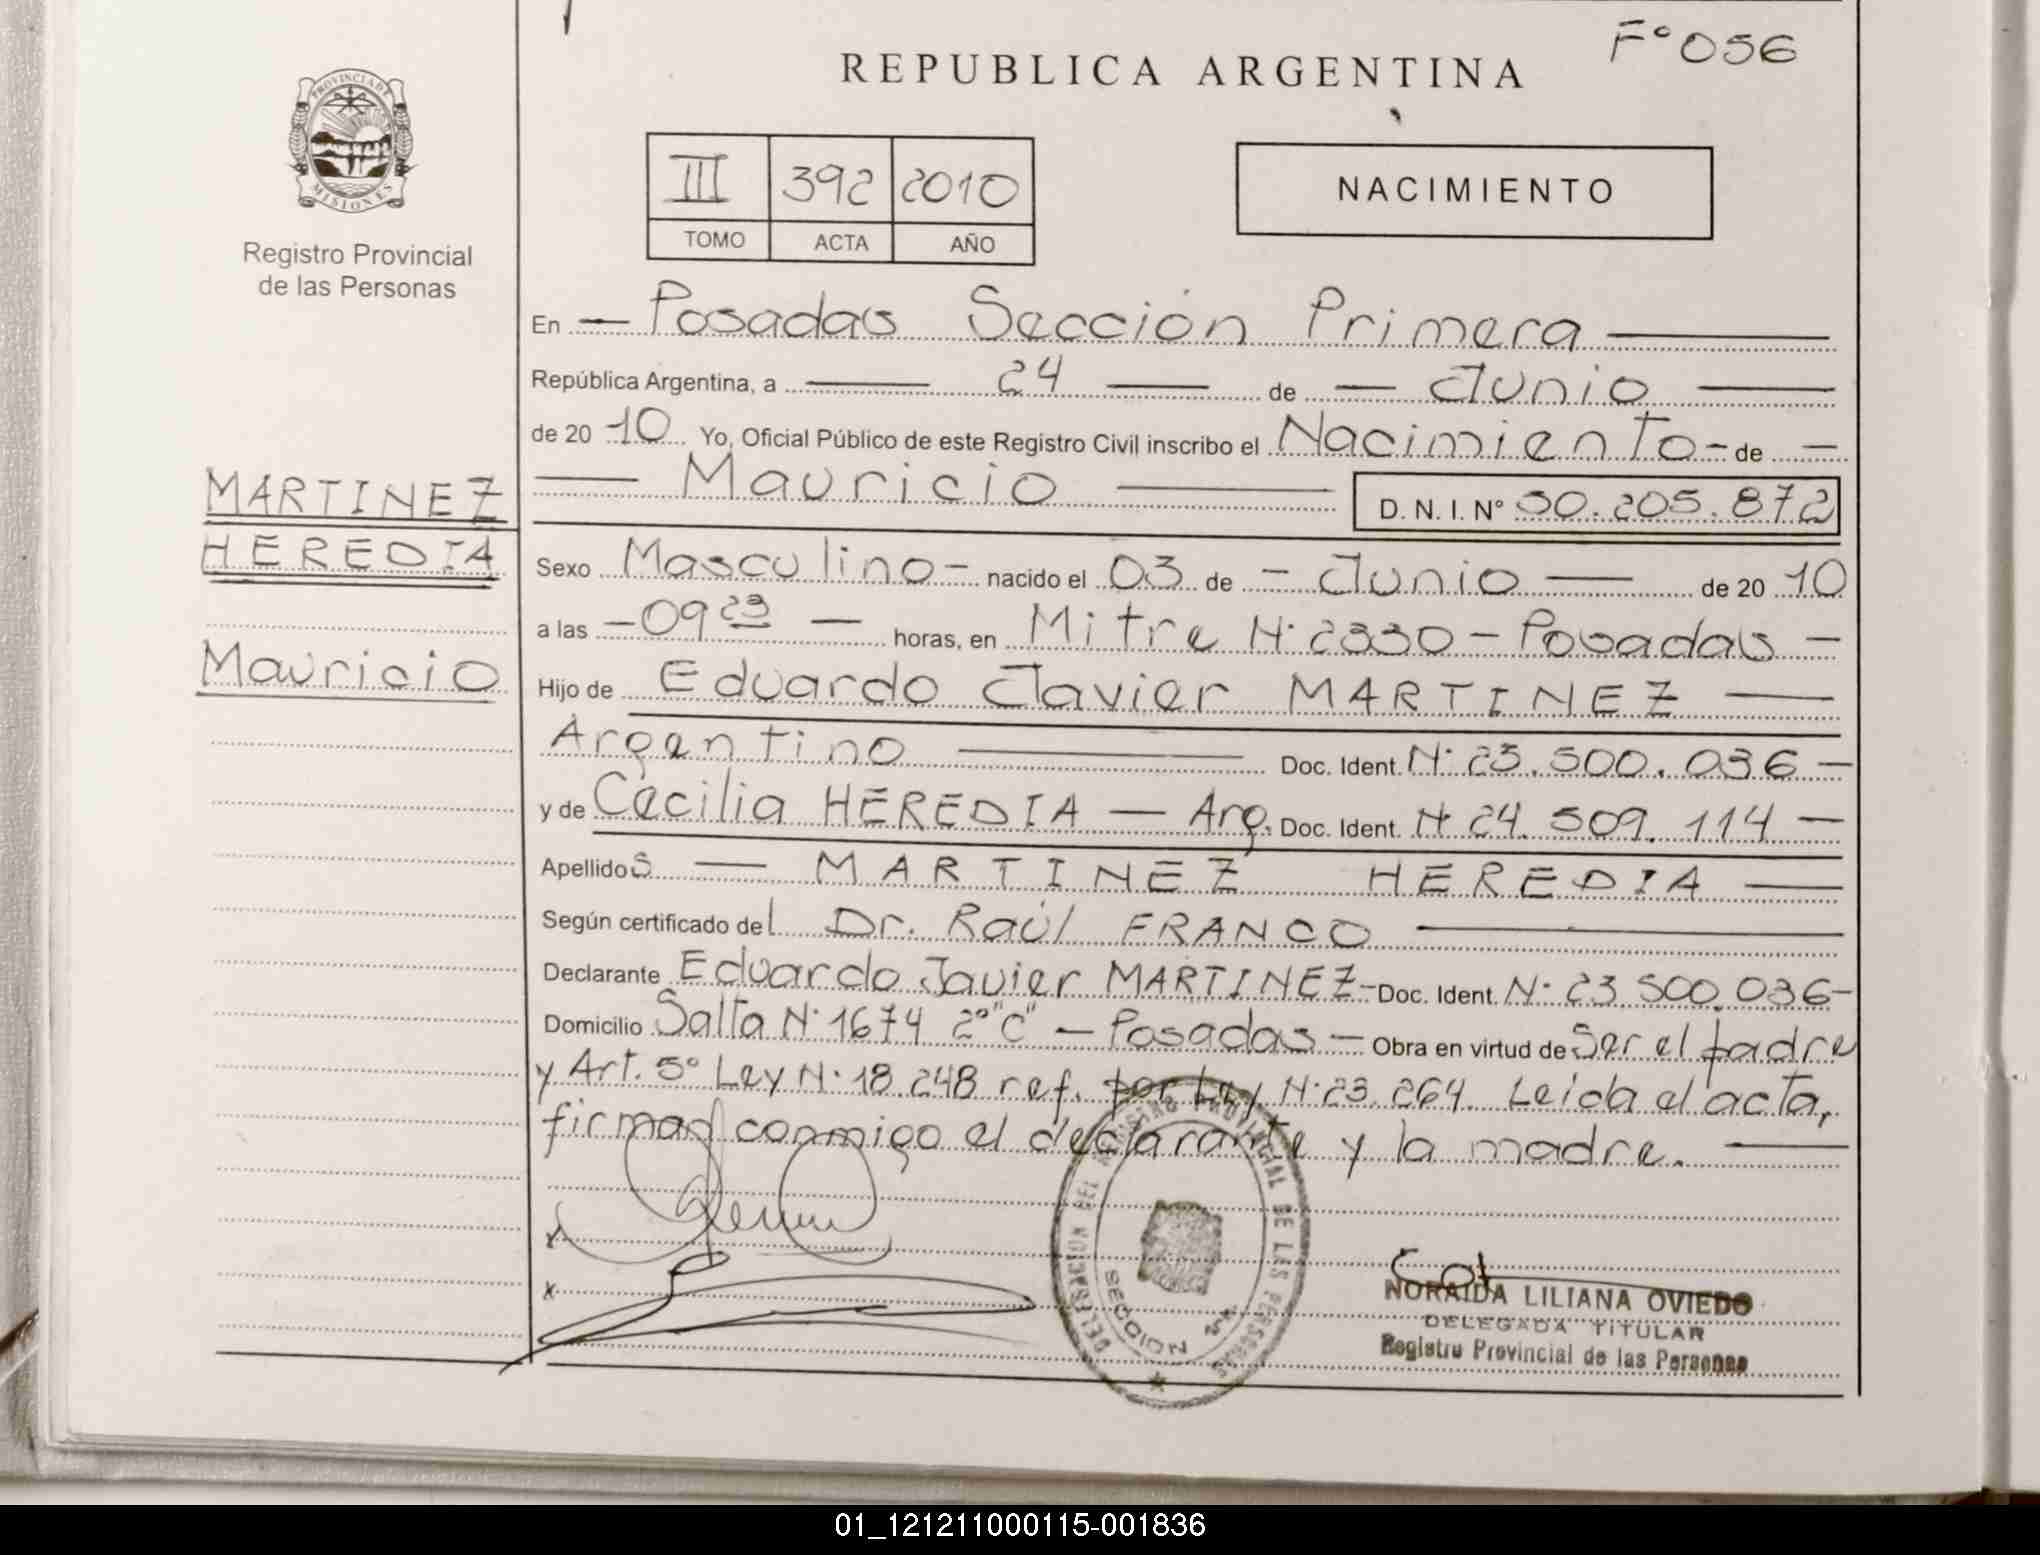 F° 056
REPUBLICA ARGENTINA
PROVINCIA DE
MISIONES
Registro Provincial
de las Personas
III 392 2010
TOMO ACTA AÑO
NACIMIENTO
En — Posadas Sección Primera —
República Argentina, a — 24 — de — Junio —
de 20 10 Yo, Oficial Público de este Registro Civil inscribo el Nacimiento - de —
— Mauricio — D. N. I. N° 50.205.872
MARTINEZ
HEREDIA
Mauricio
Sexo Masculino - nacido el 03 de - Junio — de 20 10
a las - 09 23 — horas, en Mitre N· 2330 - Posadas -
Hijo de Eduardo Javier MARTINEZ —
Argentino — Doc. Ident. N· 23.500.036 —
y de Cecilia HEREDIA — Arg. Doc. Ident. N· 24.509.114 —
Apellidos — MARTINEZ HEREDIA —
Según certificado del Dr. Raúl FRANCO —
Declarante Eduardo Javier MARTINEZ - Doc. Ident. N· 23 500.036 -
Domicilio Salta N· 1674 2° "C" — Posadas — Obra en virtud de Ser el padre
y Art. 5° Ley N· 18.248 ref. por Ley N· 23.264. Leida el acta,
firman conmigo el declarante y la madre. —
x
x
DELEGACION DEL REGISTRO PROVINCIAL DE LAS PERSONAS
SECCION 1a
NORAIDA LILIANA OVIEDO
DELEGADA TITULAR
Registro Provincial de las Personas
01_121211000115-001836